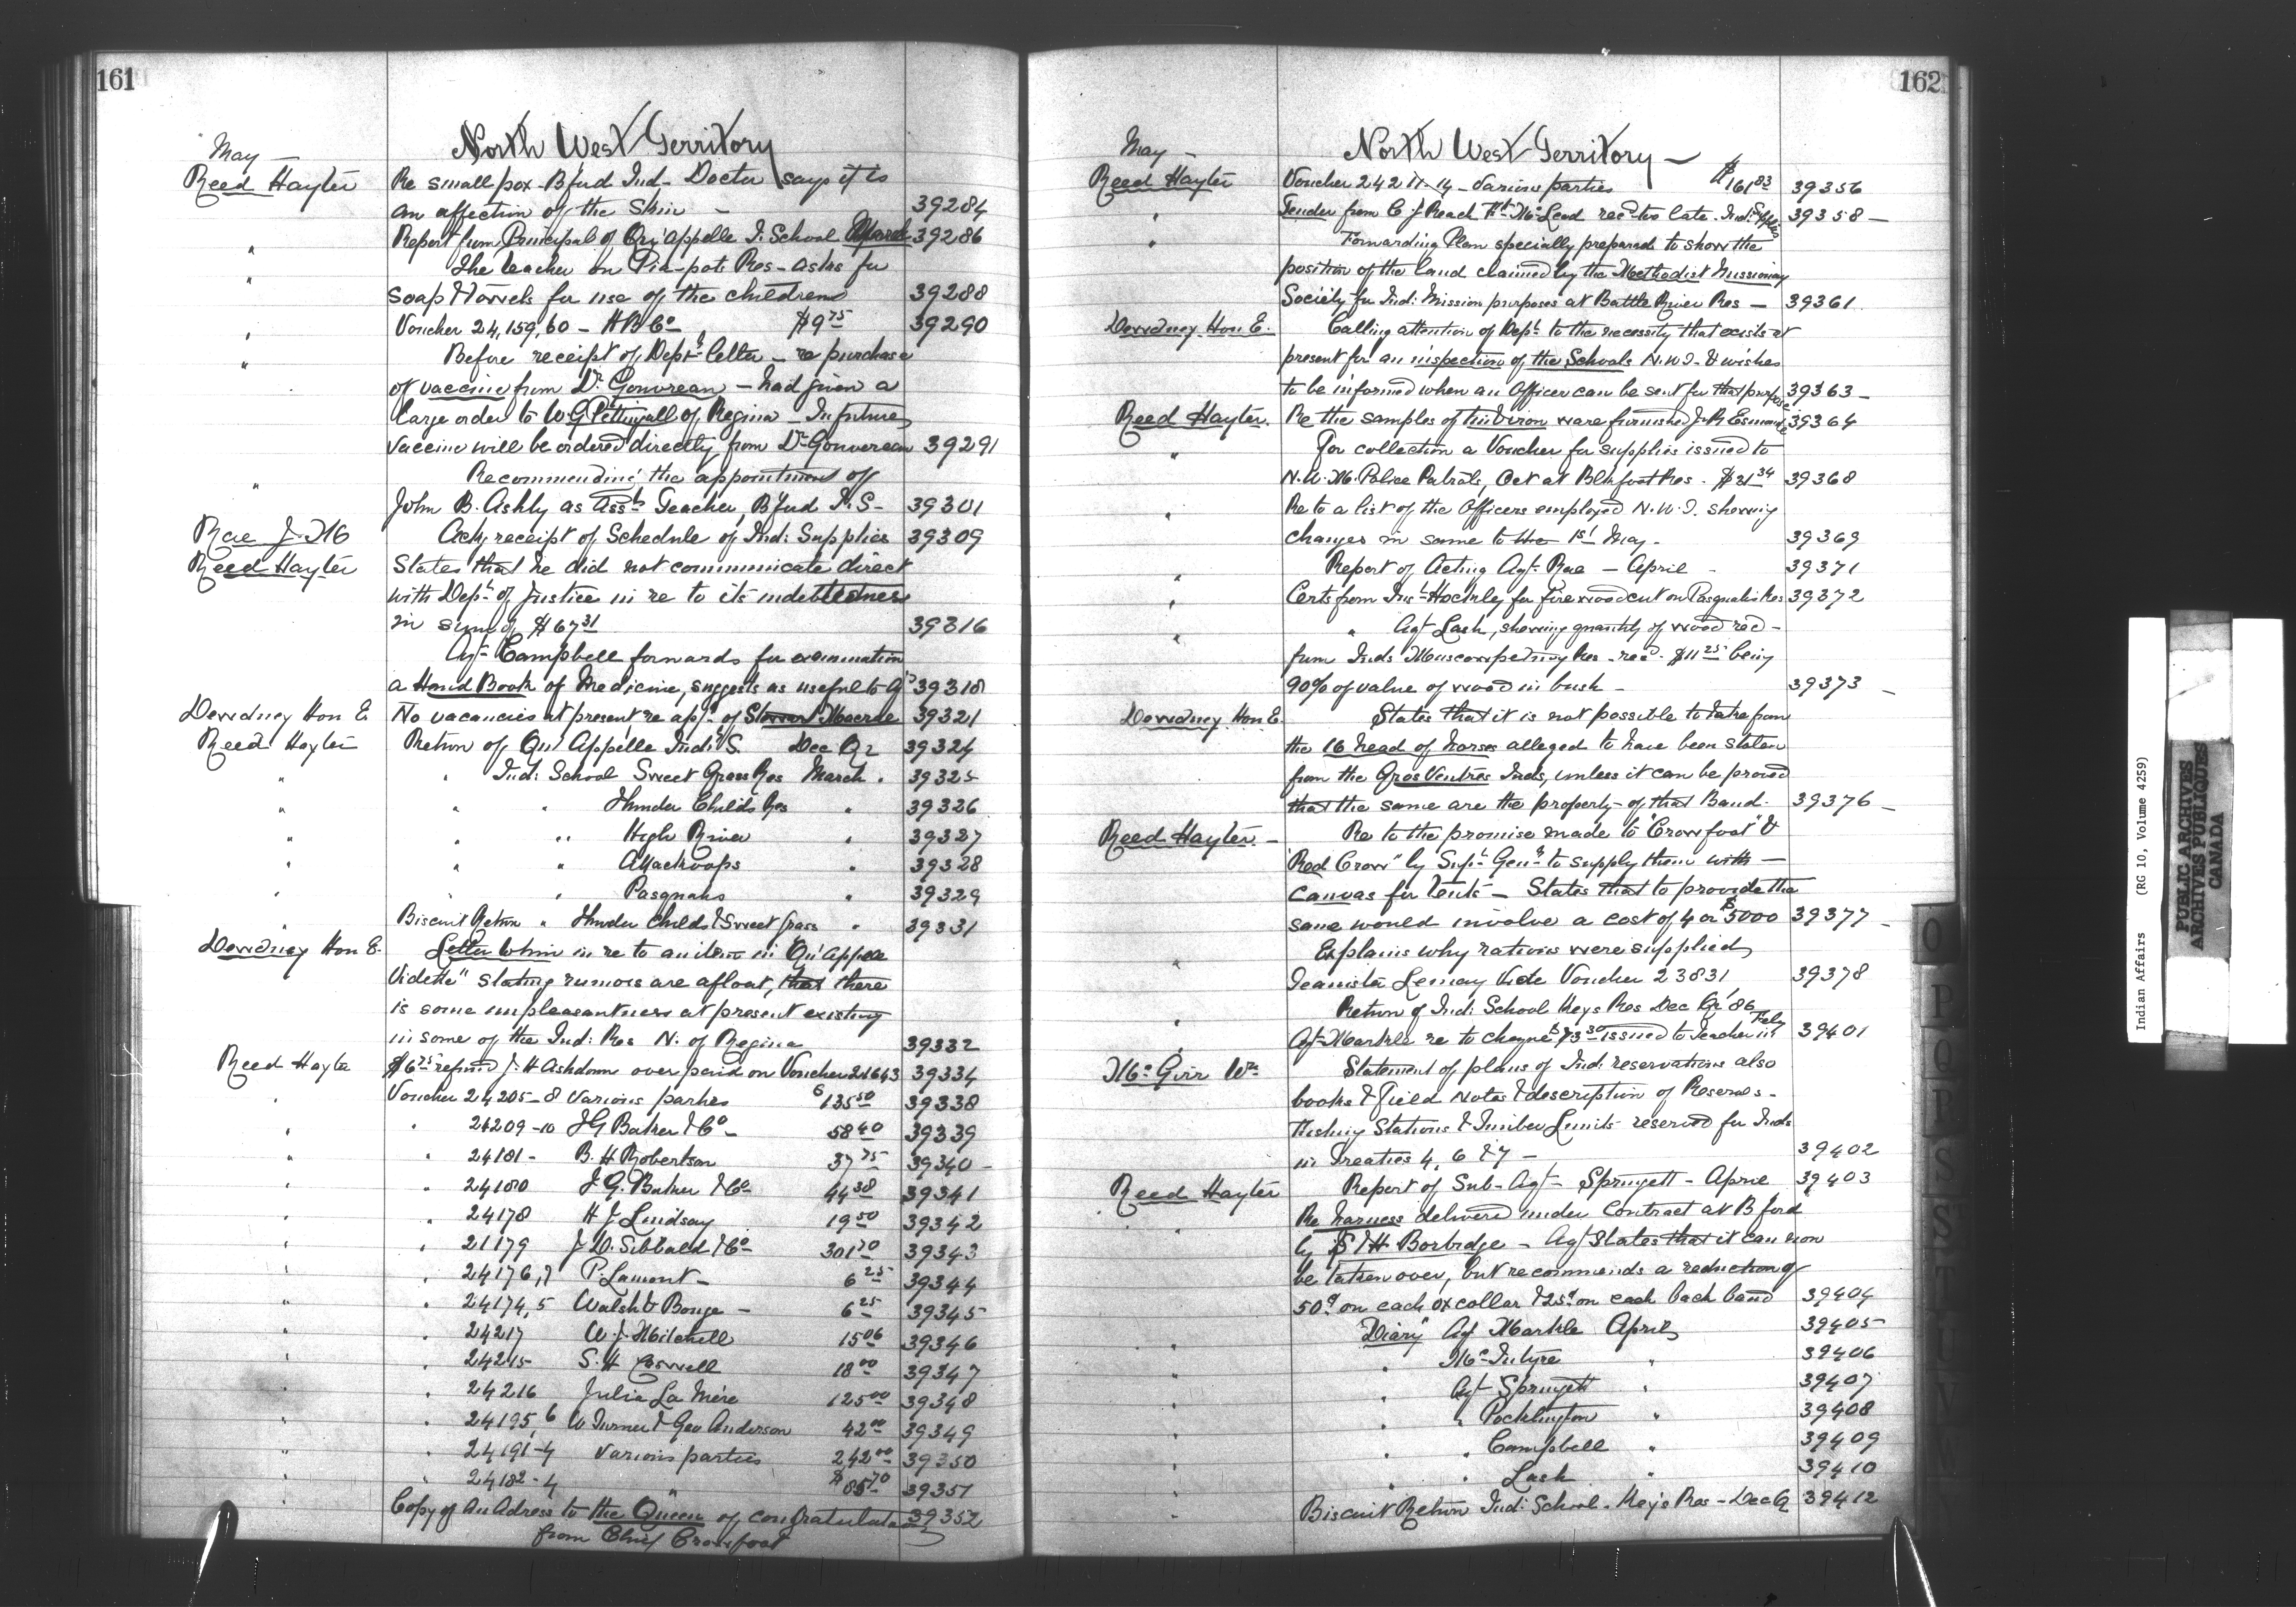 161
North West Territory
May —
Reed Hayter Re small pox - Bfud Ind - Doctor says it is
an affection of the Skin — 39284
" Report from Principal of Qu'Appelle I. School March 39286
" The teacher on Pia-pots Res - asks for
soap & Towels for use of the childrens 39288
" Voucher 24,159,60 - H B Co $9 75 39290
" Before receipt of Dept's letter - re purchase
of vaccine from Dr Gouvreau - had given a
large order to W G Pettingall of Regina - In future
vaccine will be ordered directly from Dr Gouvereau 39291
" Recommending the appointment of
John B. Ashly as Asst Teacher, Bfud I. S - 39301
Rae J. M Ackg receipt of Schedule of Ind: Supplies 39309
Reed Hayter States that he did not communicate direct
with Dept of Justice in re to its indebtedness
in sum of $67 31 39316
Agt Campbell forwards for examination
a Hand Book of Medicine, suggests as useful to Agts 39318
Dewdney Hon E. No vacancies at present re appt of Stewart Macrae 39321
Reed Hayter Return of Qu'Appelle Indl S. Dec Qr 39324
" " Ind: School Sweet Grass Res March . 39325
" " " Thunder Childs Res " 39326
" " " High River " 39327
" " " Attackoops " 39328
" " " Pasquahs " 39329
" Biscuit Return " Thunder Childs & Sweet Grass " 39331
Dewdney Hon E. Letter to him in re to an item in "Qu'Appelle
Vidette" stating rumors are afloat, that there
is some unpleasantness at present existing
in some of the Ind: Res N. of Regina 39332
Reed Hayter $6 75 refund J. H Ashdown over paid on Voucher 21643 39334
" Voucher 24205-8 Various parties $135 50 39338
" " 24209-10 J G Baker & Co - 58 40 39339
" " 24181 - B. H Robertson 37 75 39340 -
" " 24180 J. G. Baker & Co 44 38 39341
" " 24178 H J Lindsay 19 50 39342
" " 21179 J. D. Sibbald & Co 301 70 39343
" " 24176,7 P. Lamont - 6 25 39344
" " 24174,5 Walsh & Bouge - 6 25 39345
" " 24217 W. J. Mitchell 15 06 39346
" " 24215 S. H Caswell 18 00 39347
" " 24216 Julia La Mere 125 00 39348
" " 24195,6 W Turner & Geo Anderson 42 00 39349
" " 24191-4 Various parties 242 00 39350
" " 24182-4 " $85 70 39351
" Copy of an Adress to the Queen of congratulation 39352
from Chief Crowfoot
162
North West Territory —
May —
Reed Hayter Voucher 24211-14 - Various parties $161 83 39356
" Tender from C. J Reach Ft McLeod recd too late. Ind: Supplies 39358 —
" Forwarding Plan specially prepared to show the
position of the land claimed by the Methodist Missionary
Society for Ind: Mission purposes at Battle River Res — 39361
Dewdney Hon E. Calling attention of Dept to the necessity that exists at
present for an inspection of the Schools N.W.T. & wishes
to be informed when an Officer can be sent for that purpose 39363 —
Reed Hayter. Re the samples of tin & iron ware furnished J. R Esmonde 39364
" For collection a Voucher for supplies issued to
N. W. M. Police Patrols, Oct at Blkfoot Res - $21 34 39368
" Re to a list of the Officers employed N. W. T. showing
changes in same to the 1st May - 39369
" Report of Acting Agt Rae — April - 39371
" Certs from Inst Hockley for fire wood cut on Pasquahs Res 39372
" " Agt Lash, showing quantity of wood recd -
from Inds Muscowpetung Res - recd $11 25 being
90% of value of wood in bush - 39373 —
Dewdney Hon E. States that it is not possible to take from
the 16 head of horses alleged to have been stolen
from the Gros Ventres Inds, unless it can be proved
that the same are the property of that Band. 39376 —
Reed Hayter. — Re to the promise made to "Crowfoot" &
"Red Crow" by Supt Genl to supply them with —
canvas for tents — States that to provide the
same would involve a cost of 4 or $5000 39377 —
" Explains why rations were supplied
Teamster Lemay vide Voucher 23831 39378
" Return of Ind: School Keys Res Dec Qr '86
Agt Markle re to cheque $73 30 issued to Teacher in Feby 39401
McGirr Wm Statement of plans of Ind: reservations also
books & Field Notes & description of Reserves -
Fishing Stations & Timber Limits reserved for Inds
in Treaties 4, 6 & 7 — 39402
Reed Hayter Report of Sub-Agt - Sprugett - April 39403
" Re harness delivered under Contract at B ford
by S & H Borbridge - Agt States that it can now
be taken over, but recommends a reduction of
50¢ on each ox collar & 25¢ on each back band 39404
" "Diary" Agt Markle April 39405
" " McIntyre " 39406
" " Agt Sprugett " 39407
" " " Pocklington " 39408
" " " Campbell " 39409
" " " Lash " 39410
" Biscuit Return Ind: School - Key's Res - Dec Q 39412
O
P
Q
R
S
S
T
U
V
W
Indian Affairs (RG 10, Volume 4259)
PUBLIC ARCHIVES
ARCHIVES PUBLIQUES
CANADA